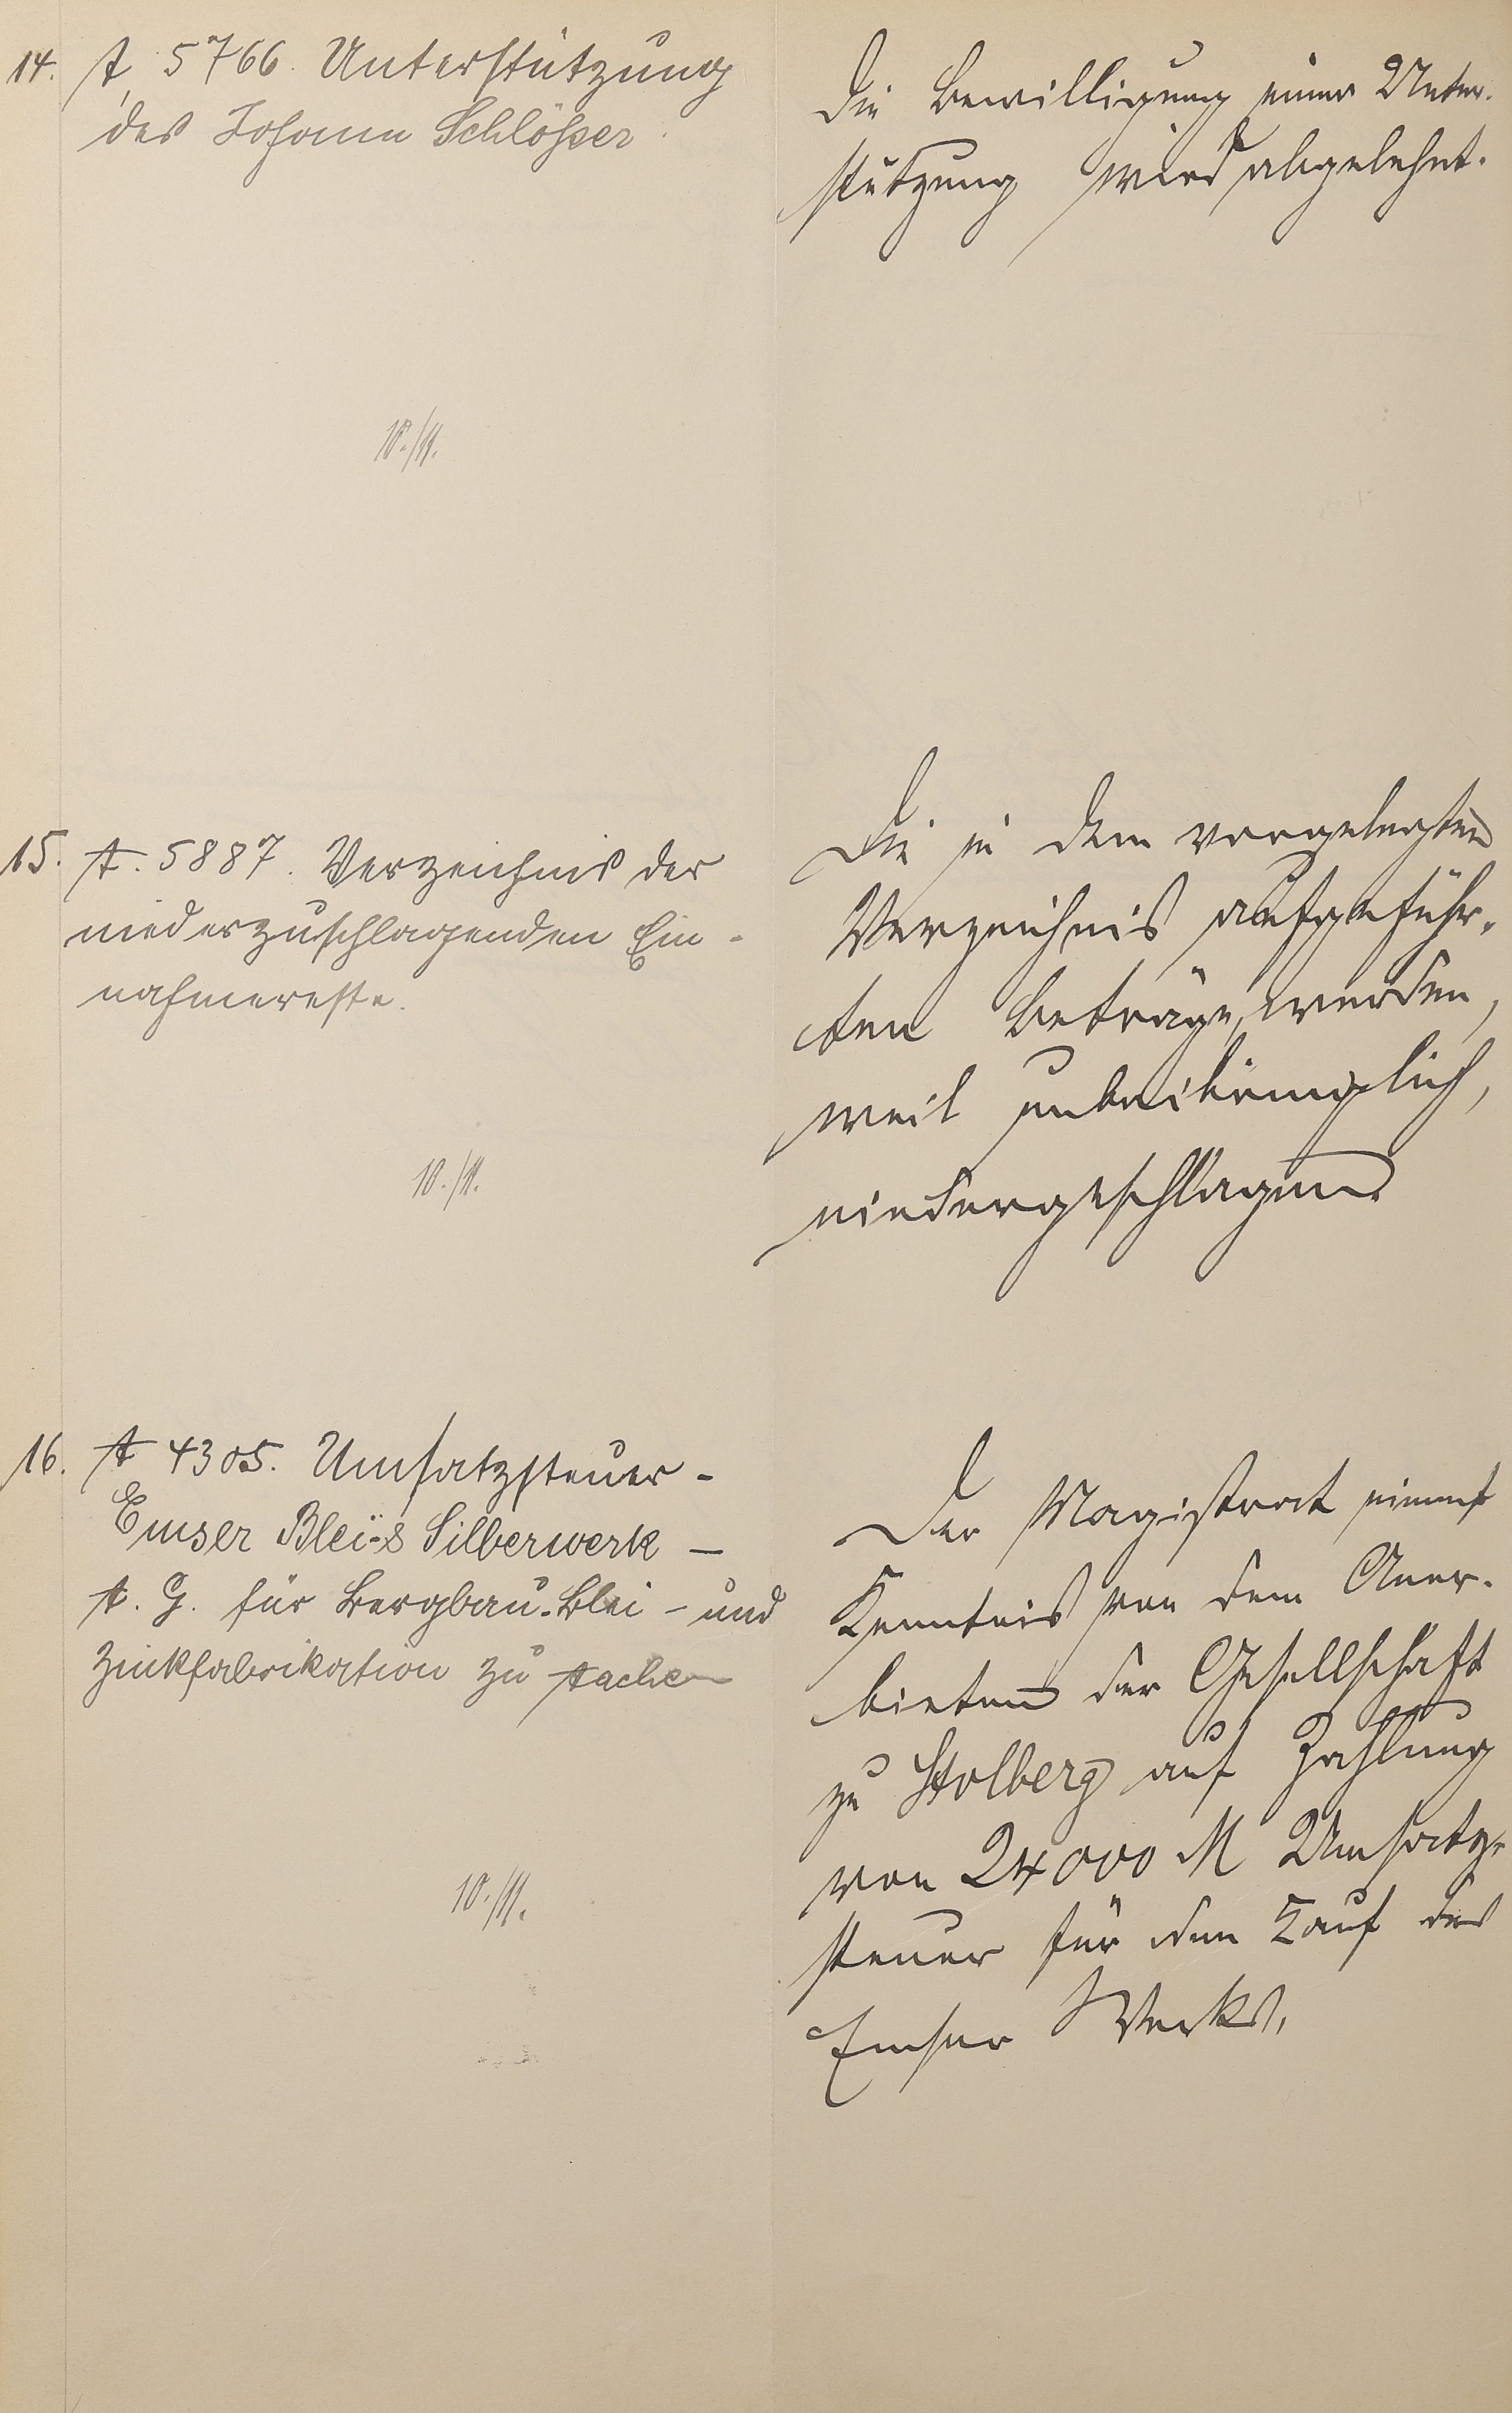 14. A 5766. Unterstützung
des Johann Schlößer.
10./11.
Die Bewilligung einer Unter-
stützung wird abgelehnt.
15. A. 5887. Verzeichnis der
niederzuschlagenden Ein-
nahmereste.
10./11.
Die in dem vorgelegten
Verzeichnis aufgeführ-
ten Beträge, werden,
weil unbeibringlich,
niedergeschlagen.
16. A 4305. Umsatzsteuer -
Emser Blei- & Silberwerk -
A. G. für Bergbau- Blei- und
Zinkfabrikation zu Aachen
10./11.
Der Magistrat nimmt
Kenntnis von dem Aner-
bieten der Gesellschaft
zu Stolberg auf Zahlung
von 24000 M Umsatz-
steuer für den Kauf des
Emser Werks.